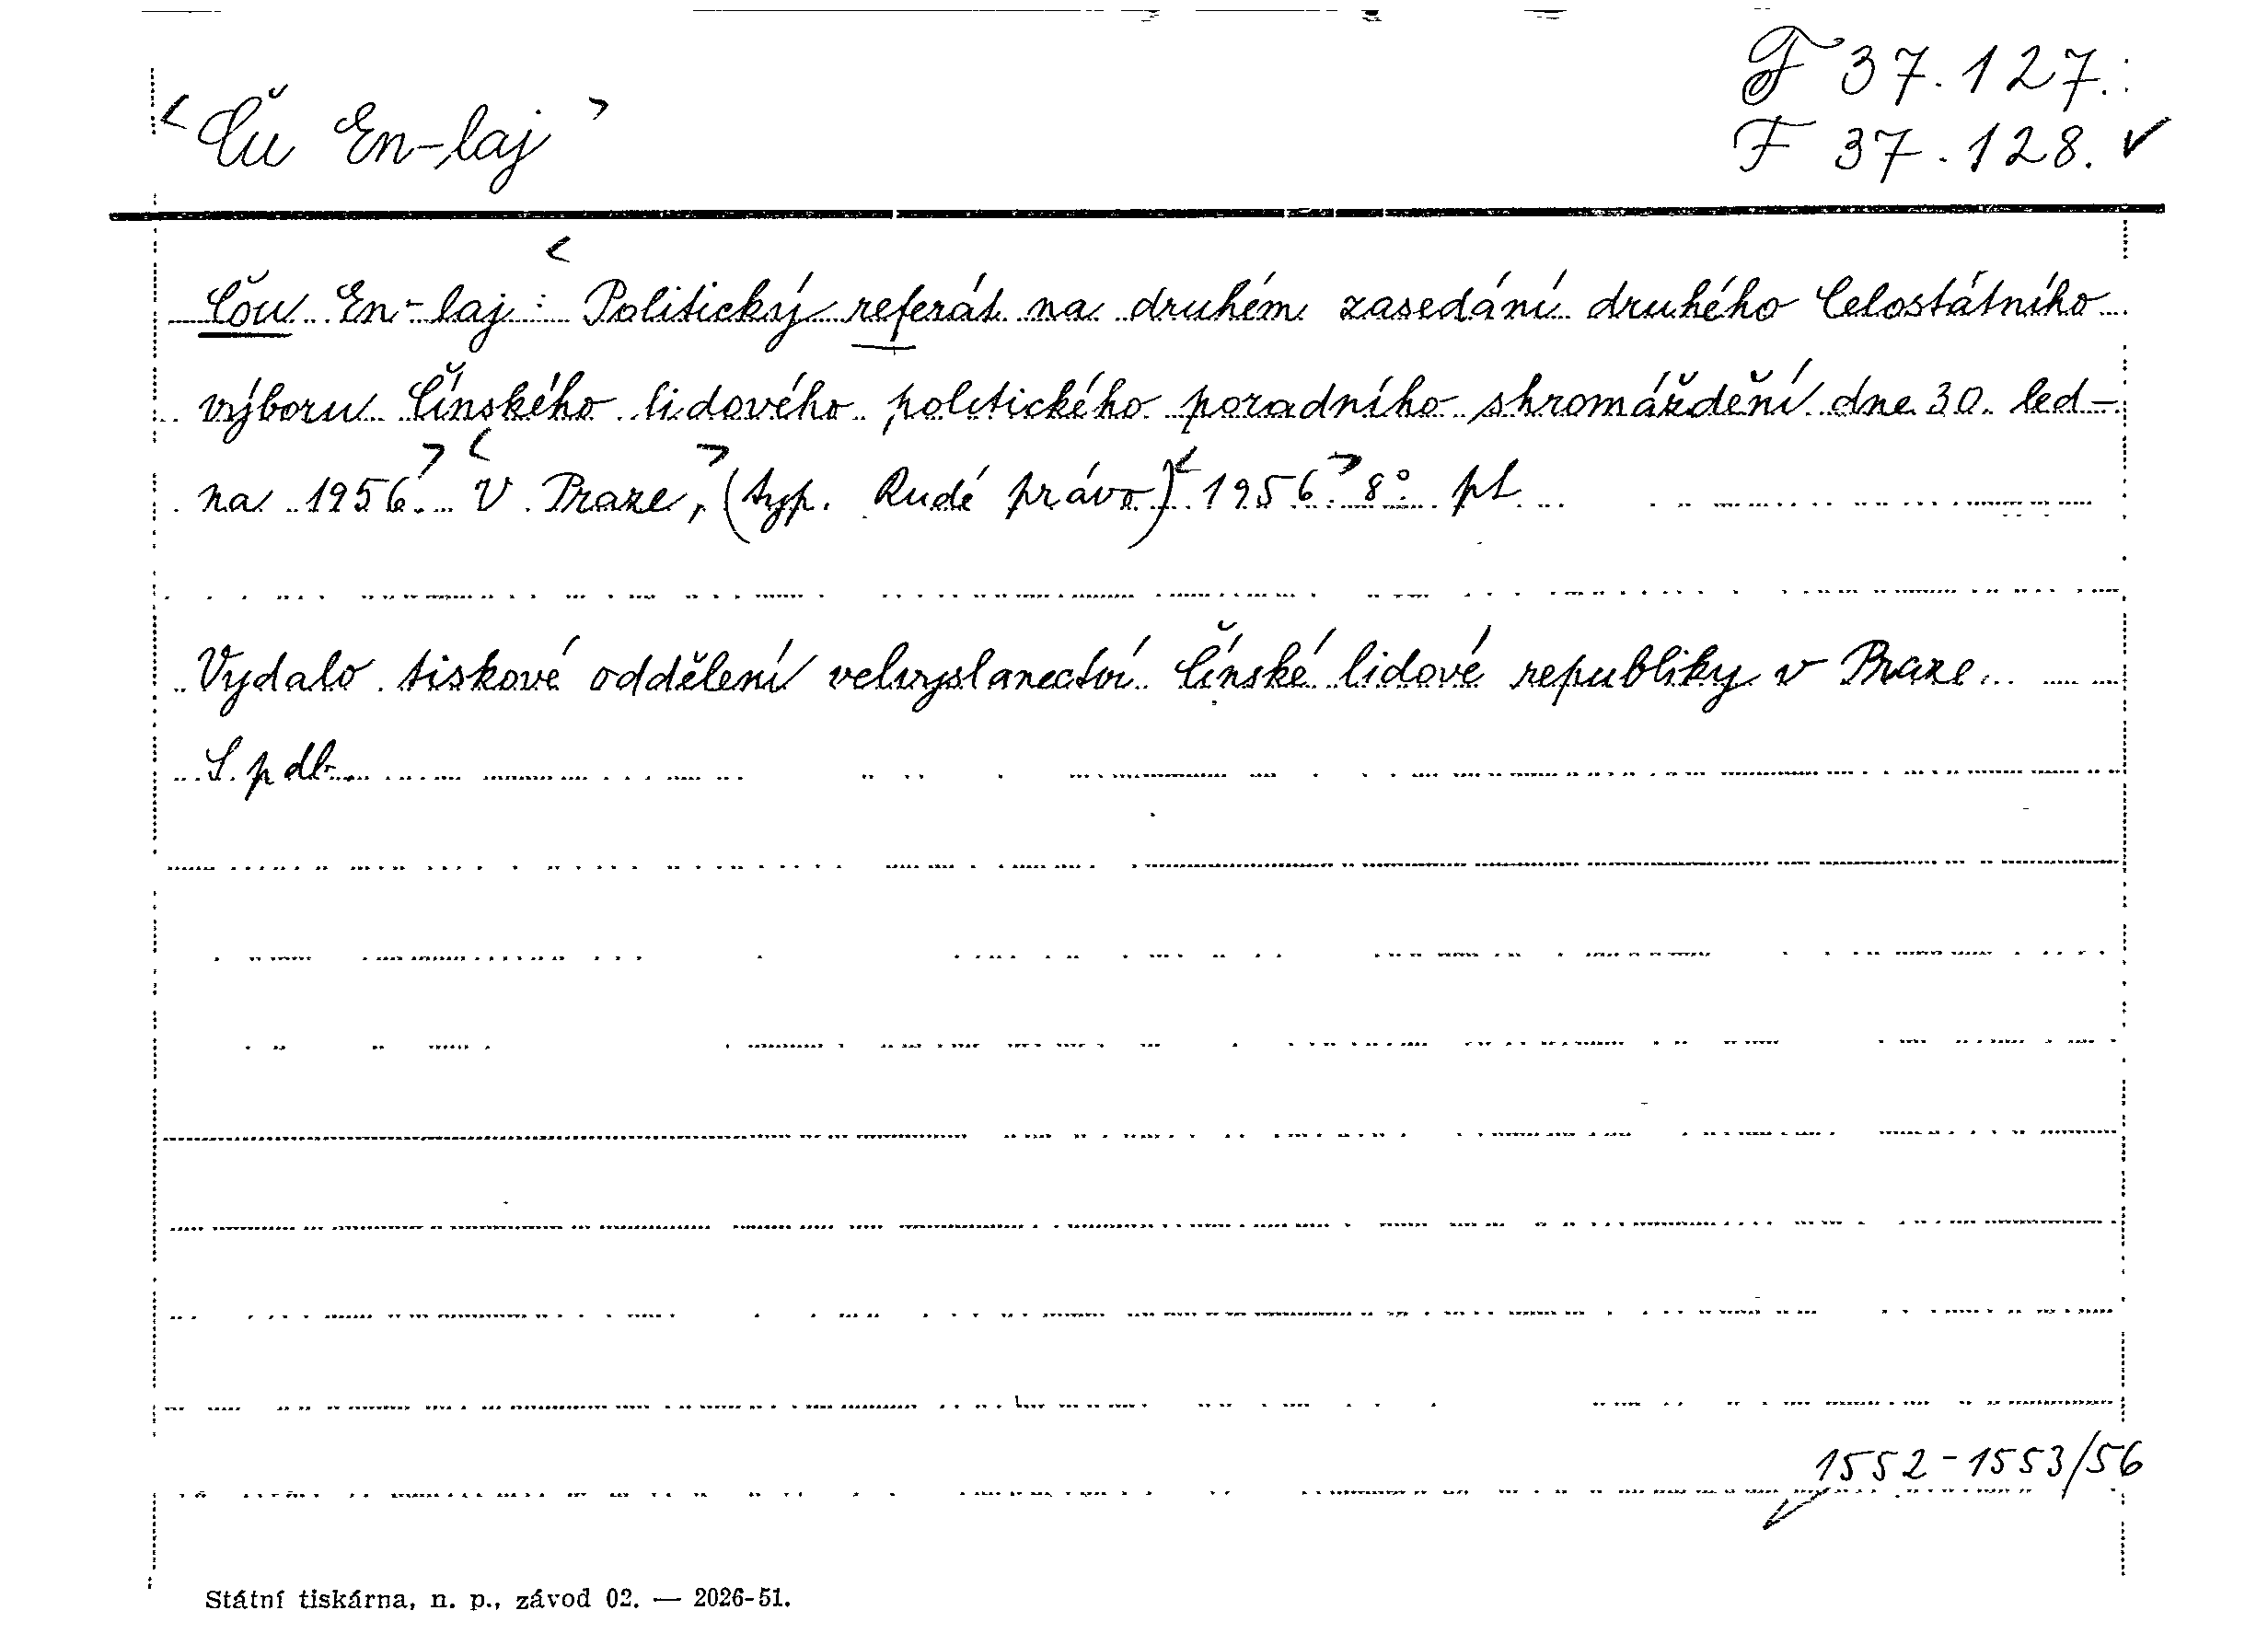 F 37.127.
<Ču En-laj>
F 37.128. ✓
Čou En-laj: <Politický referát na druhém zasedání druhého Celostátního
výboru Čínského lidového politického poradního shromáždění dne 30. led-
na 1956.> <V Praze,> (typ. Rudé právo) <1956.> 8°. pt
Vydalo tiskové oddělení velvyslanectví Čínské lidové republiky v Praze.
S. pdb.
1552-1553/56
Státní tiskárna, n. p., závod 02. — 2026-51.